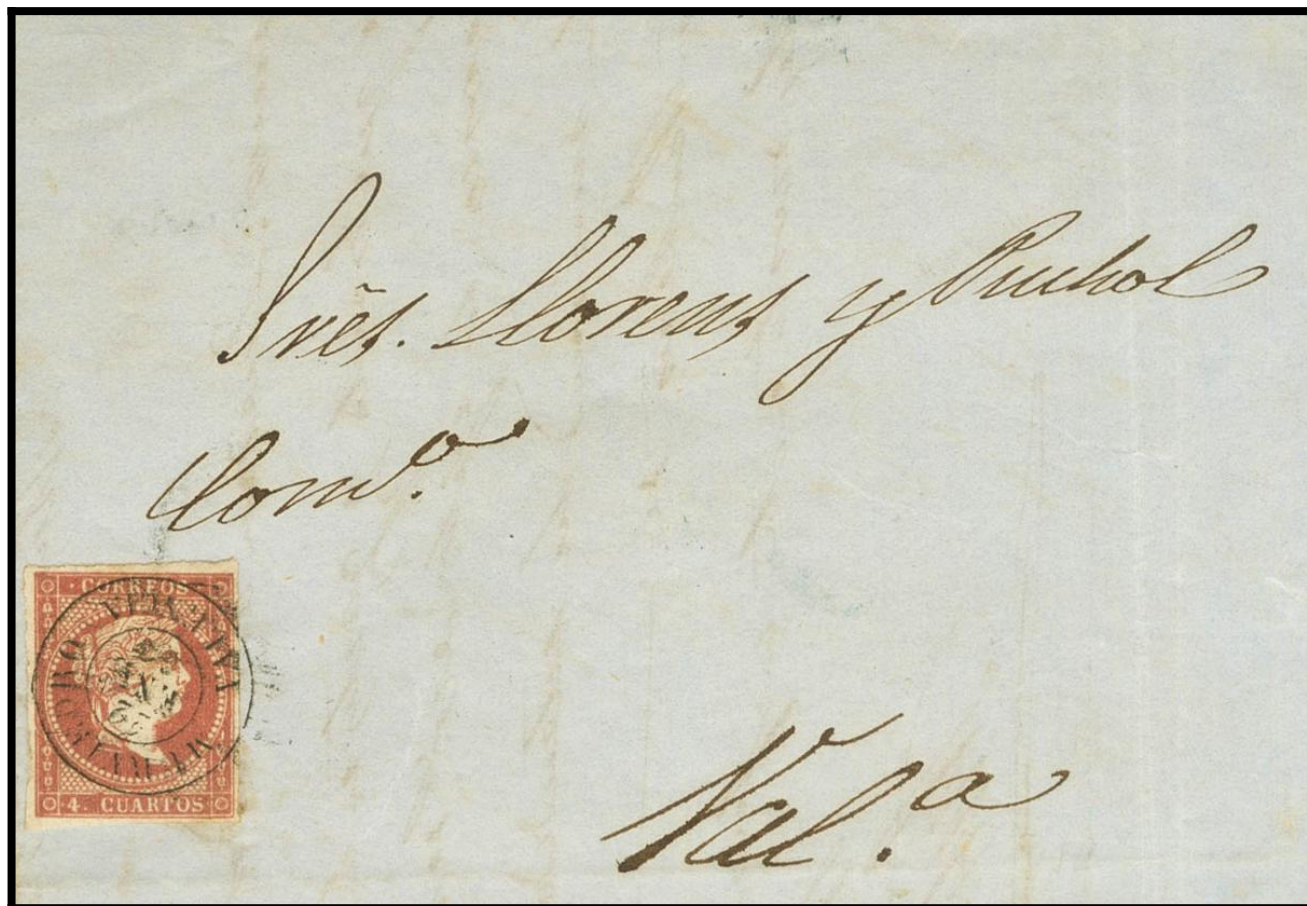 Srẽs. Llorens y Puchol
Com.º
CORREOS
4. CUARTOS
Val.ª